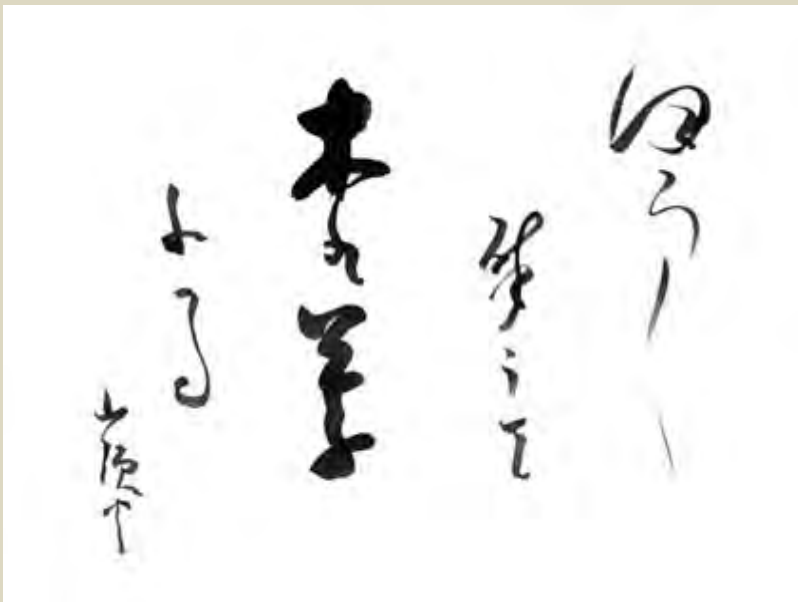 ほろ〳〵
酔うて
木の葉
ふる
山頭火